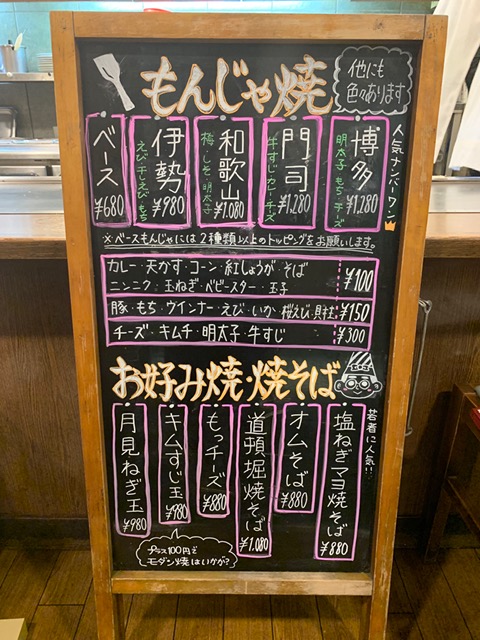 もんじゃ焼
他にも
色々あります
人気ナンバーワン
博多
明太子 もち・チーズ
¥1,280
門司
牛すじ カレー チーズ
¥1,280
和歌山
梅 しそ 明太子
¥1,080
伊勢
えび 干しえび もち
¥980
ベース
¥680
※ベースもんじゃには2種類以上のトッピングをお願いします。
カレー・天かす・コーン・紅しょうが・そば
ニンニク・玉ねぎ・ベビースター・玉子
¥100
豚・もち・ウインナー・えび・いか・桜えび・貝柱
¥150
チーズ・キムチ・明太子・牛すじ
¥300
お好み焼・焼そば
若者に人気!!
塩ねぎマヨ焼そば
¥880
オムそば
¥880
道頓堀焼そば
¥1,080
もっチーズ
¥880
キムすじ玉
¥980
月見ねぎ玉
¥980
プラス100円で
モダン焼はいかが?